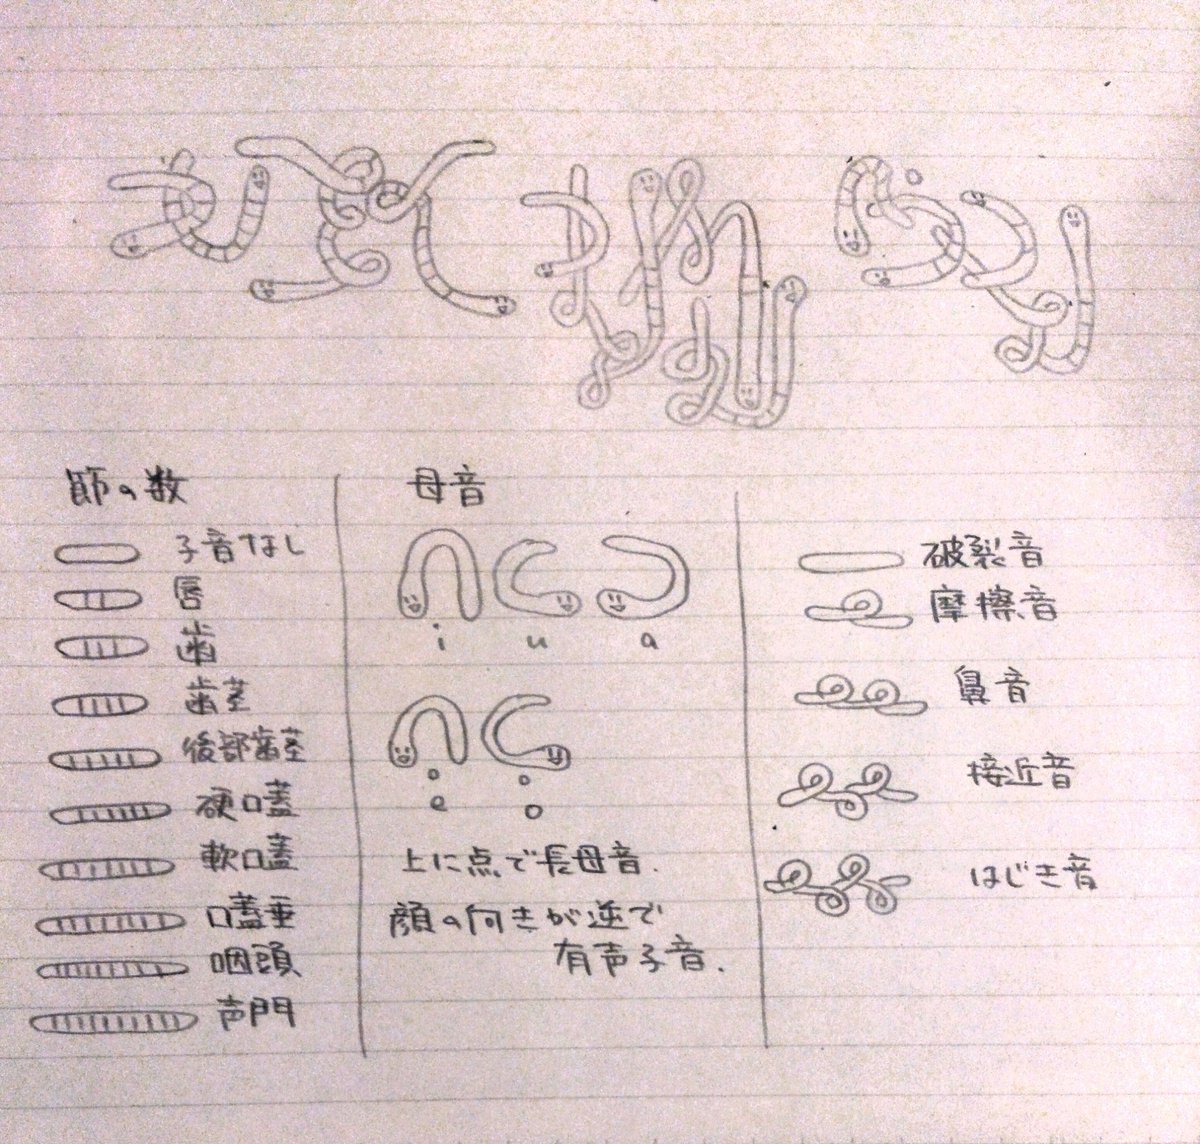 節の数
子音なし
唇
歯
歯茎
後部歯茎
硬口蓋
軟口蓋
口蓋垂
咽頭
声門
母音
i u a
e o
上に点で長母音.
顔の向きが逆で
有声子音.
破裂音
摩擦音
鼻音
接近音
はじき音